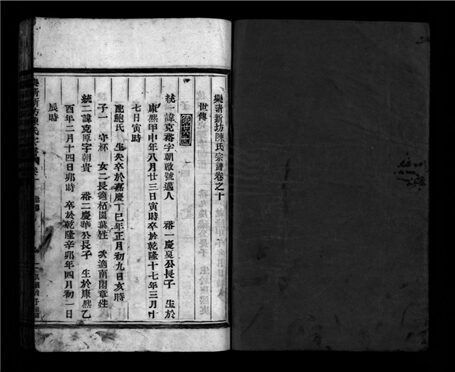 樂清新坊陳氏宗譜卷之十
世傳
統一諱克裕字朝啟號邁人 裕一慶夏公長子 生於
康熙甲申年八月廿三日寅時卒於乾隆十七年三月十
七日寅時
配鮑氏 生失卒於嘉慶丁巳年正月初九日亥時
子一 守杯 女二長適栢園葉姓 次適南閣章姓
統二諱克厚字朝貴 裕二慶華公長子 生於康熙乙
酉年二月十四日卯時 卒於乾隆辛卯年四月初一日
辰時